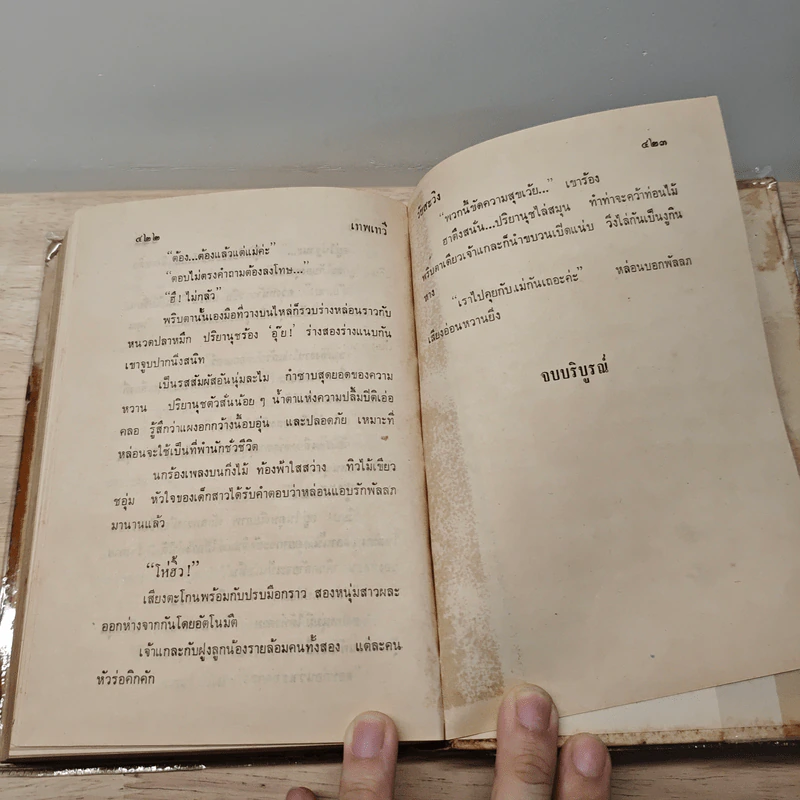 ๔๒๒
เทพเทวี
“ต้อง...ต้องแล้วแต่แม่ค่ะ”
“ตอบไม่ตรงคำถามต้องลงโทษ...”
“ฮึ! ไม่กลัว”
พริบตานั้นเองมือที่วางบนไหล่ก็รวบร่างหล่อนราวกับ
หนวดปลาหมึก ปริยานุชร้อง ‘อุ๊ย!’ ร่างสองร่างแนบกัน
เขาจูบปากนิ่งสนิท
เป็นรสสัมผัสอันนุ่มละไม กำซาบสุดยอดของความ
หวาน ปริยานุชตัวสั่นน้อย ๆ น้ำตาแห่งความปลื้มปีติเอ่อ
คลอ รู้สึกว่าแผงอกกว้างนี้อบอุ่น และปลอดภัย เหมาะที่
หล่อนจะใช้เป็นที่พำนักชั่วชีวิต
นกร้องเพลงบนกิ่งไม้ ท้องฟ้าใสสว่าง ทิวไม้เขียว
ชอุ่ม หัวใจของเด็กสาวได้รับคำตอบว่าหล่อนแอบรักพัลลภ
มานานแล้ว
“โห่ฮิ้ว!”
เสียงตะโกนพร้อมกับปรบมือกราว สองหนุ่มสาวผละ
ออกห่างจากกันโดยอัตโนมัติ
เจ้าแกละกับฝูงลูกน้องรายล้อมคนทั้งสอง แต่ละคน
หัวร่อคิกคัก
๔๒๓
วัยสะวิง
“พวกนี้ขัดความสุขเว้ย...” เขาร้อง
ฮาตึงสนั่น...ปริยานุชไล่สมุน ทำท่าจะคว้าท่อนไม้
พริบตาเดียวเจ้าแกละก็นำขบวนเปิดแน่บ วิ่งไล่กันเป็นงูกิน
หาง
“เราไปคุยกับแม่กันเถอะค่ะ” หล่อนบอกพัลลภ
เสียงอ่อนหวานยิ่ง
จบบริบูรณ์